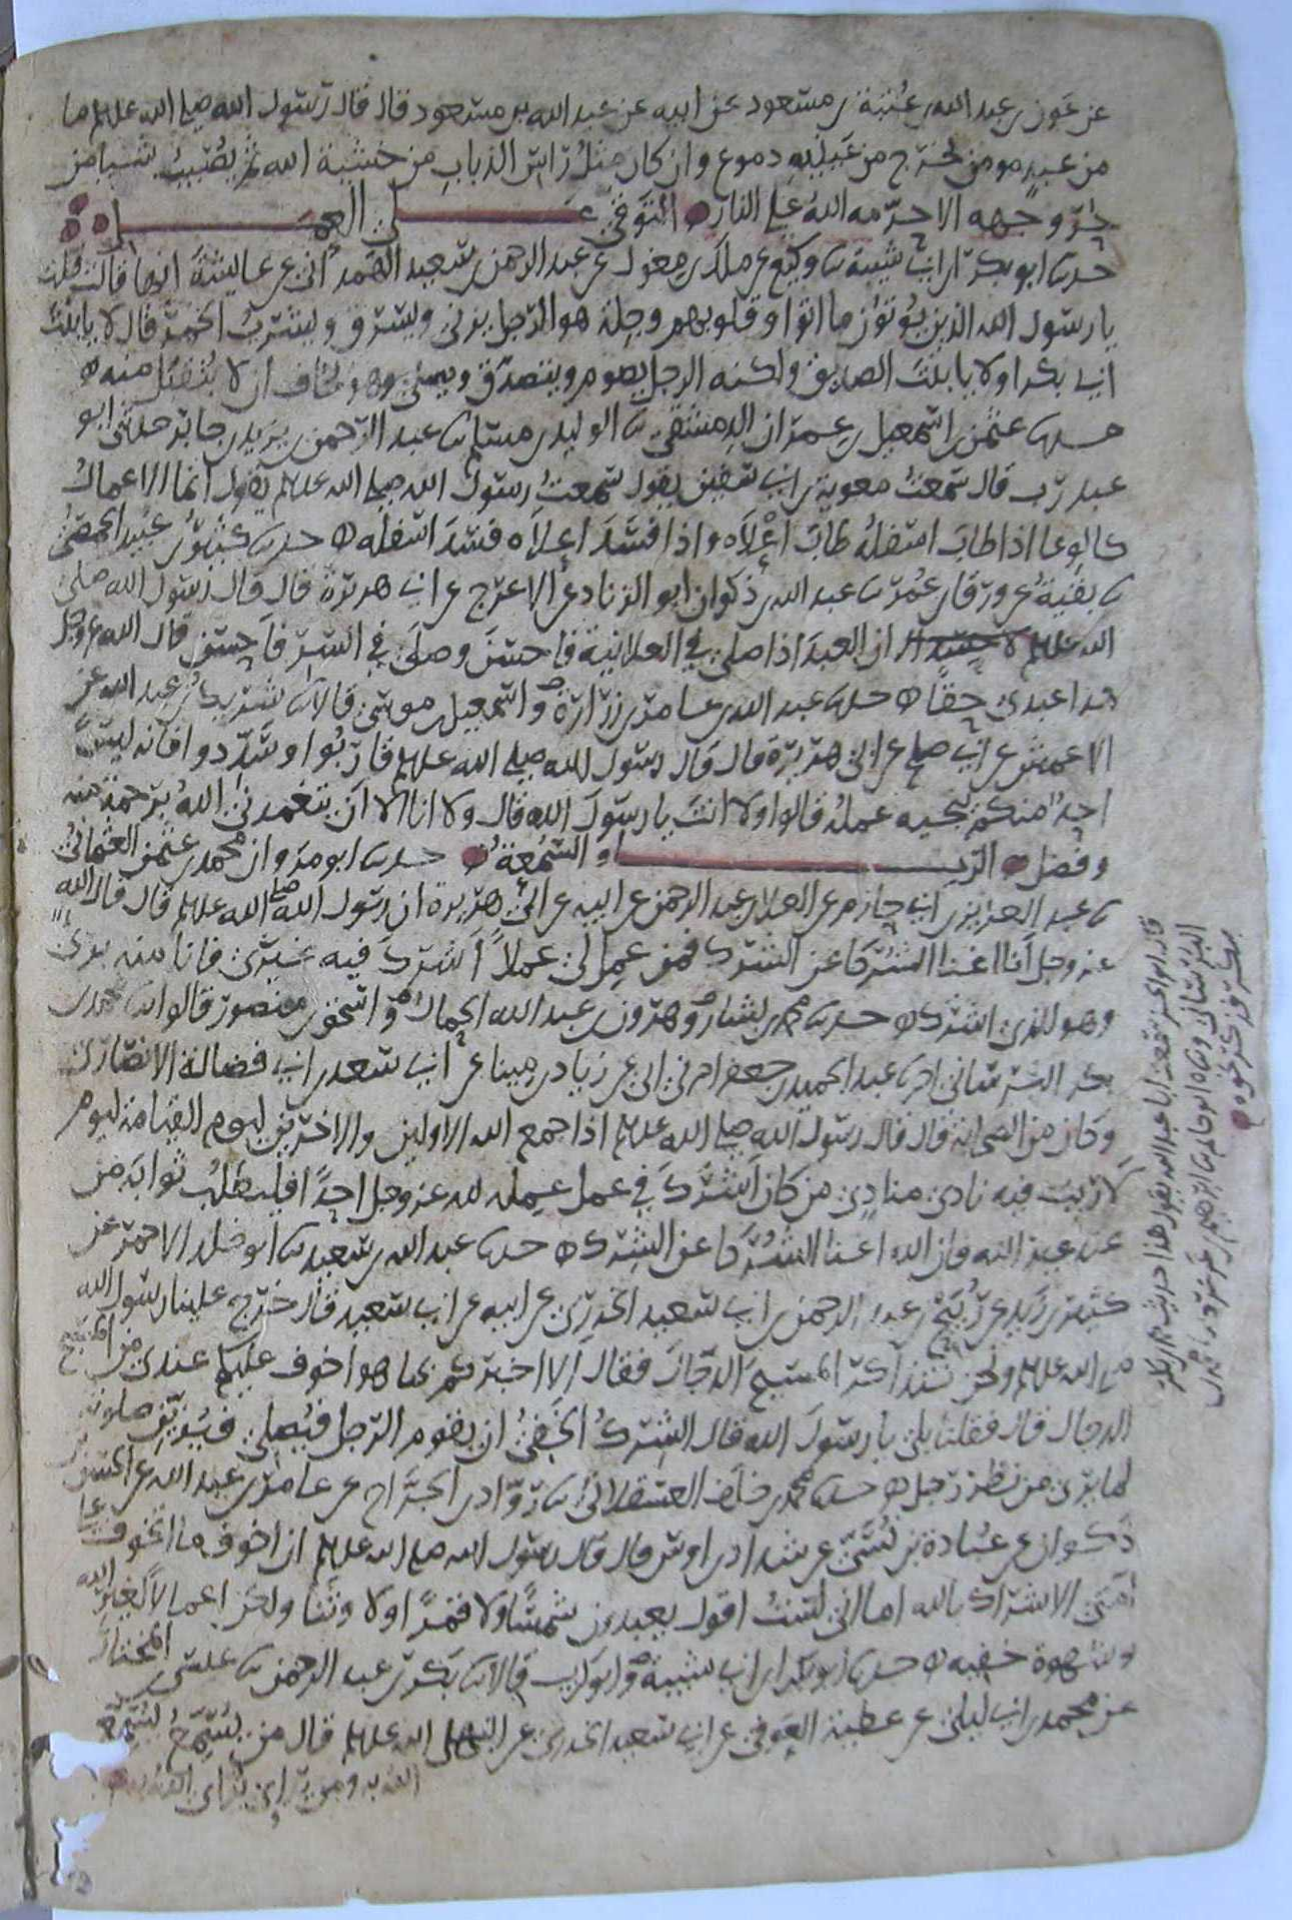 عن عون بن عبد الله بن عتبة بن مسعود عن ابيه عن عبد الله بن مسعود قال قال رسول الله صلى الله علىهلم ما
من عبد مومن تخرج من عينيه دموع وان كان مثل راس الذباب من خشية الله ثم يصيب شيا من
حر وجهه الا حرمه الله على النار التوقي على العمل
حدىىا ابو بكر ابن ابي شيبة ىا وكيع عن ملك بن مغول عن عبد الرحمن بن سعيد الهمداني عن عايشة انها قالت قلت
يا رسول الله الذين يؤتون ما اتوا وقلوبهم وجلة هو الرجل يزني ويسرق ويشرب الخمر قال لا يا بنت
ابي بكر او لا يا بنت الصديق ولكنه الرجل يصوم ويتصدق ويصلي وهو يخاف ان لا يتقبل منه
حدىىا عثمن بن اسمعيل بن عمران الدمشقي ىا الوليد بن مسلم ىا عبد الرحمن بن يزيد بن جابر حدثني ابو
عبد رب قال سمعت معوية بن ابي سفين يقول سمعت رسول الله صلى الله علىهلم يقول انما الاعمال
كالوعا اذا طاب اسفله طاب اعلاه واذا فسد اعلاه فسد اسفله حدىىا كثير بن عبيد الحمصي
ىا بقية عن ورقا بن عمر ىا عبد الله بن ذكوان ابو الزناد عن الاعرج عن ابي هريرة قال قال رسول الله صلى
الله علىهلم ان العبد اذا صلى في العلانية فاحسن وصلى في السر فاحسن قال الله عز وجل
هذا عبدي حقا حدىىا عبد الله بن عامر بن زرارة واسمعيل بن موسى قالا ىا شريك بن عبد الله عن
الاعمش عن ابي صلح عن ابي هريرة قال قال رسول الله صلى الله علىهلم قاربوا وسددوا فانه ليس
احد منكم ينجيه عمله قالوا ولا انت يا رسول الله قال ولا انا الا ان يتغمدني الله برحمة منه
وفضل الريا و السمعة حدىىا ابو مروان محمد بن عثمن العثماني
ىا عبد العزيز بن ابي حازم عن العلا بن عبد الرحمن عن ابيه عن ابي هريرة ان رسول الله صلى الله علىهلم قال قال الله
عز وجل انا اغنا الشركا عن الشرك فمن عمل لي عملا اشرك فيه غيري فانا منه بري
وهو للذي اشرك حدىىا محمد بن بشار وهرون بن عبد الله الحمال واسحق بن منصور قالوا ىا محمد بن
بكر البرساني ىا عبد الحميد بن جعفر اخبرني ابي عن زياد بن مينا عن ابي سعد بن ابي فضالة الانصاري
وكان من الصحابة قال قال رسول الله صلى الله علىهلم اذا جمع الله الاولين والاخرين ليوم القيامة ليوم
لا ريب فيه نادى منادي من كان اشرك في عمل عمله لله عز وجل احدا فليطلب ثوابه من
عند غير الله فان الله اغنا الشركا عن الشرك حدىىا عبد الله بن سعيد ىا ابو خلد الاحمر عن
كثير بن زيد عن ربيح بن عبد الرحمن بن ابي سعيد الخدري عن ابيه عن ابي سعيد قال خرج علينا رسول الله
صلى الله علىهلم ونحن نتذاكر المسيح الدجال فقال الا اخبركم بما هو اخوف عليكم عندي من المسيح
الدجال قال فقلنا بلى يا رسول الله قال الشرك الخفي ان يقوم الرجل فيصلي فيزين صلوته
لما يرى من نظر رجل حدىىا محمد بن خلف العسقلاني ىا رواد بن الجراح عن عامر بن عبد الله عن الحسن بن
ذكوان عن عبادة بن نسي عن شداد بن اوس قال قال رسول الله صلى الله علىهلم ان اخوف ما اتخوف على
امتي الاشراك بالله اما اني لست اقول يعبدون شمسا ولا قمرا ولا وثنا ولكن اعمالا لغير الله
وشهوة خفية حدىىا ابو بكر ابن ابي شيبة وابو كريب قالا ىا بكر بن عبد الرحمن ىا عيسى بن المختار
عن محمد بن ابي ليلى عن عطية العوفي عن ابي سعيد الخدري عن النبي صلى الله علىهلم قال من يسمع يسمع
الله به ومن يرايي يرايي الله به
قال ابو الحسن سمعت ابا عبد الله يقول هذا حديث بن بكر
البرساني وىاه ابو حاتم ىا ابرهيم بن عرعرة ىا محمد بن
بكر فذكر نحوه